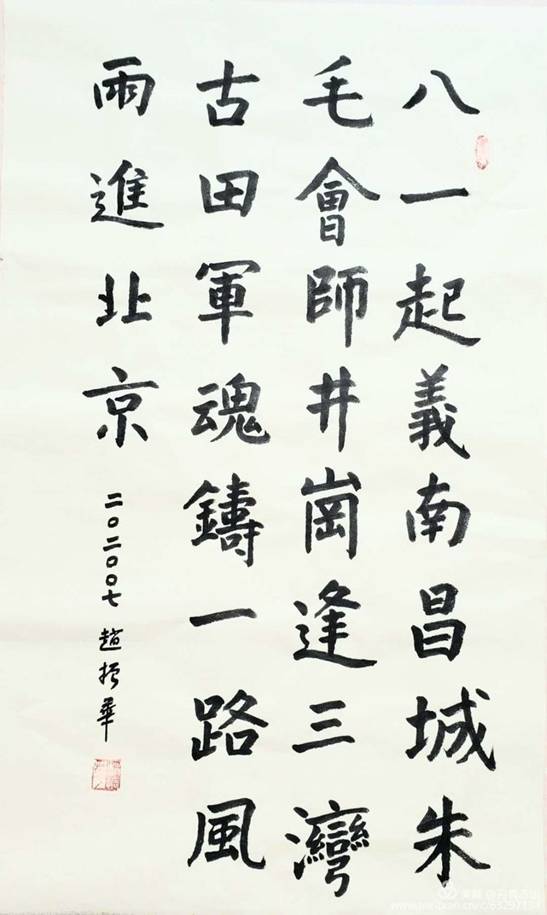 八一起義南昌城朱
毛會師井崗逢三灣
古田軍魂鑄一路風
雨進北京
二〇二〇〇七 趙振華